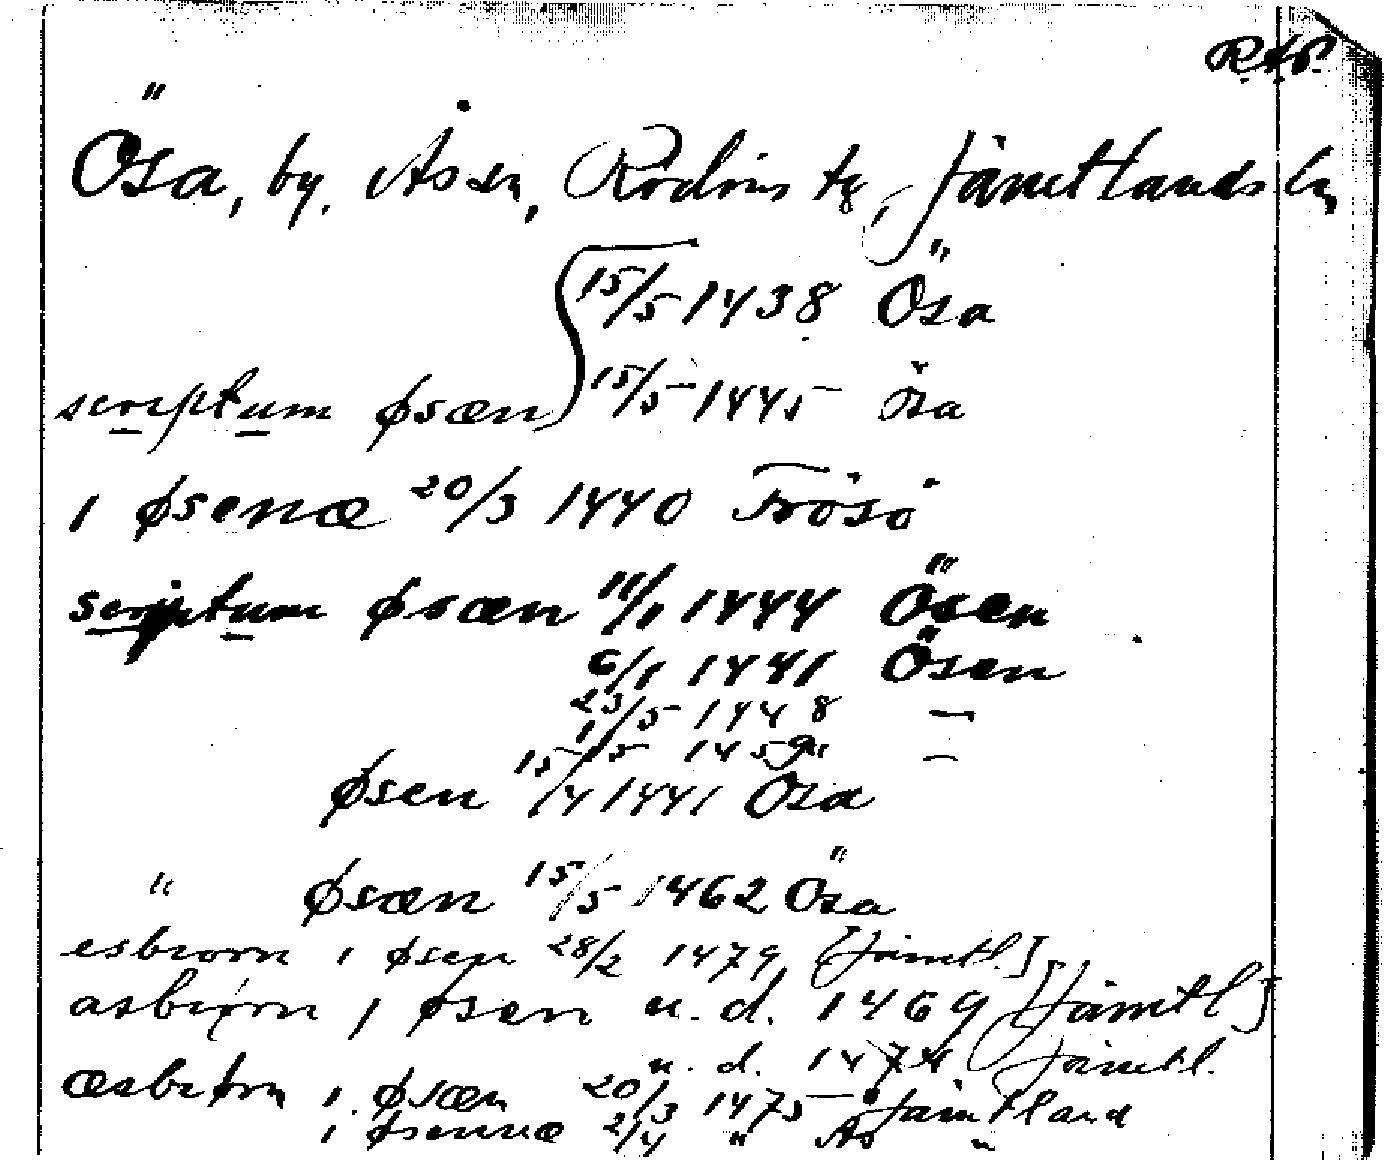 R.A.P.
Ösa, by. Ås sn, Rödöns tg, Jämtlands ln
15/5 1438 Ösa
scriptum øsæn 15/5 1445 ösa
i øsenæ 20/3 1440 Frösö
scriptum øsæn 11/1 1444 Ösen
6/1 1441 Ösen
23/5 1448 —
1/5 145 —
øsen 15/4 1441 Ösa
" øsæn 15/5 1462 Ösa
esbiorn i øsen 28/2 1479 [Jämtl.]
asbiørn i øsen u. d. 1469 [Jämtl]
u. d. 1474 Jämtl.
æsbiørn i øsæn 20/3 1475 Jämtland
i øsennæ 2/4 " Ås "